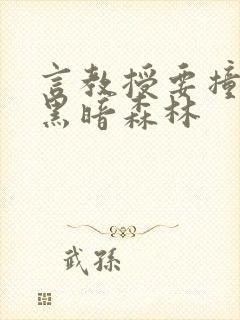 言教授要撞
黑暗森林
武孫